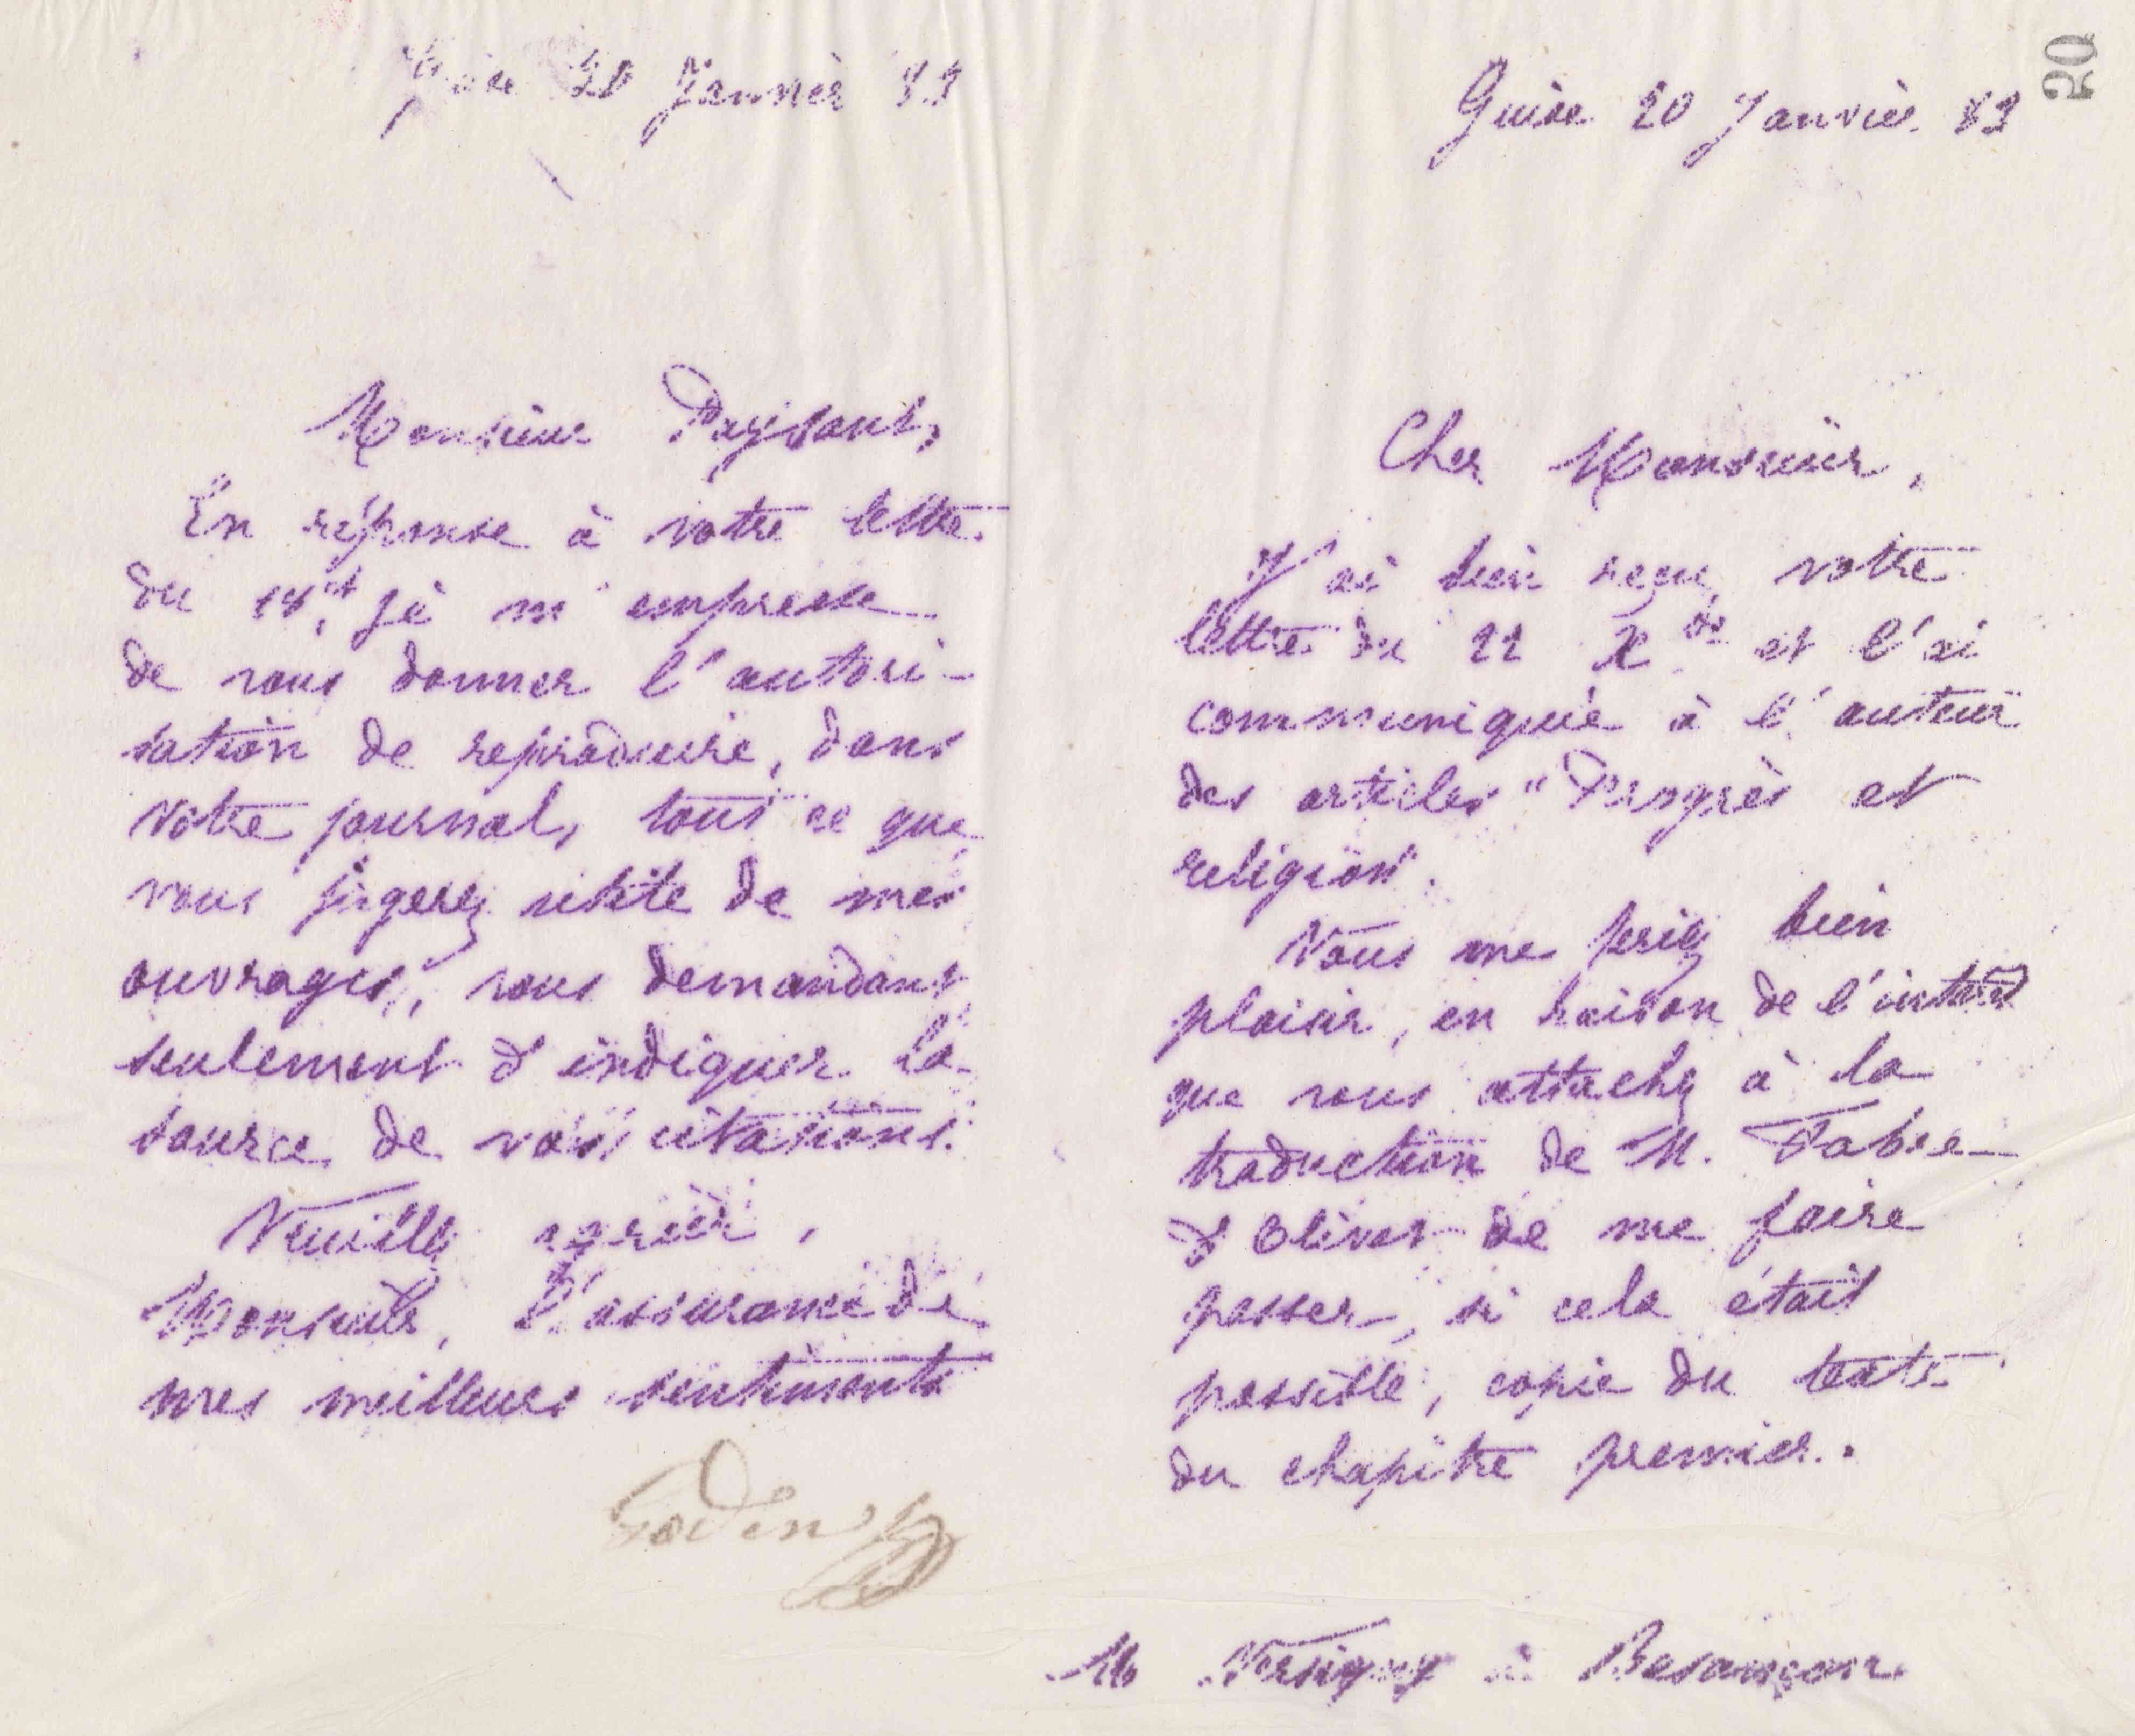 Guise 20 Janvier 83
Monsieur Pagisant,
En réponse à votre lettre
du 18 ct, je m'empresse
de vous donner l'autori-
sation de reproduire, dans
votre journal, tout ce que
vous jugerez utile de mes
ouvrages, vous demandant
seulement d'indiquer la
source de vos citations.
Veuillez agréer,
Monsieur, l'assurance de
mes meilleurs sentiments
Godin
20
Guise 20 Janvier 83
Cher Monsieur,
J'ai bien reçu votre
lettre du 22 Xbre et l'ai
communiquée à l'auteur
des articles "Progrès et
religion".
Vous me feriez bien
plaisir, en raison de l'intérêt
que vous attachez à la
traduction de M. Fabre
d'Olivet de me faire
passer, si cela était
possible, copie du texte
du chapitre premier.
M Versigny à Besançon